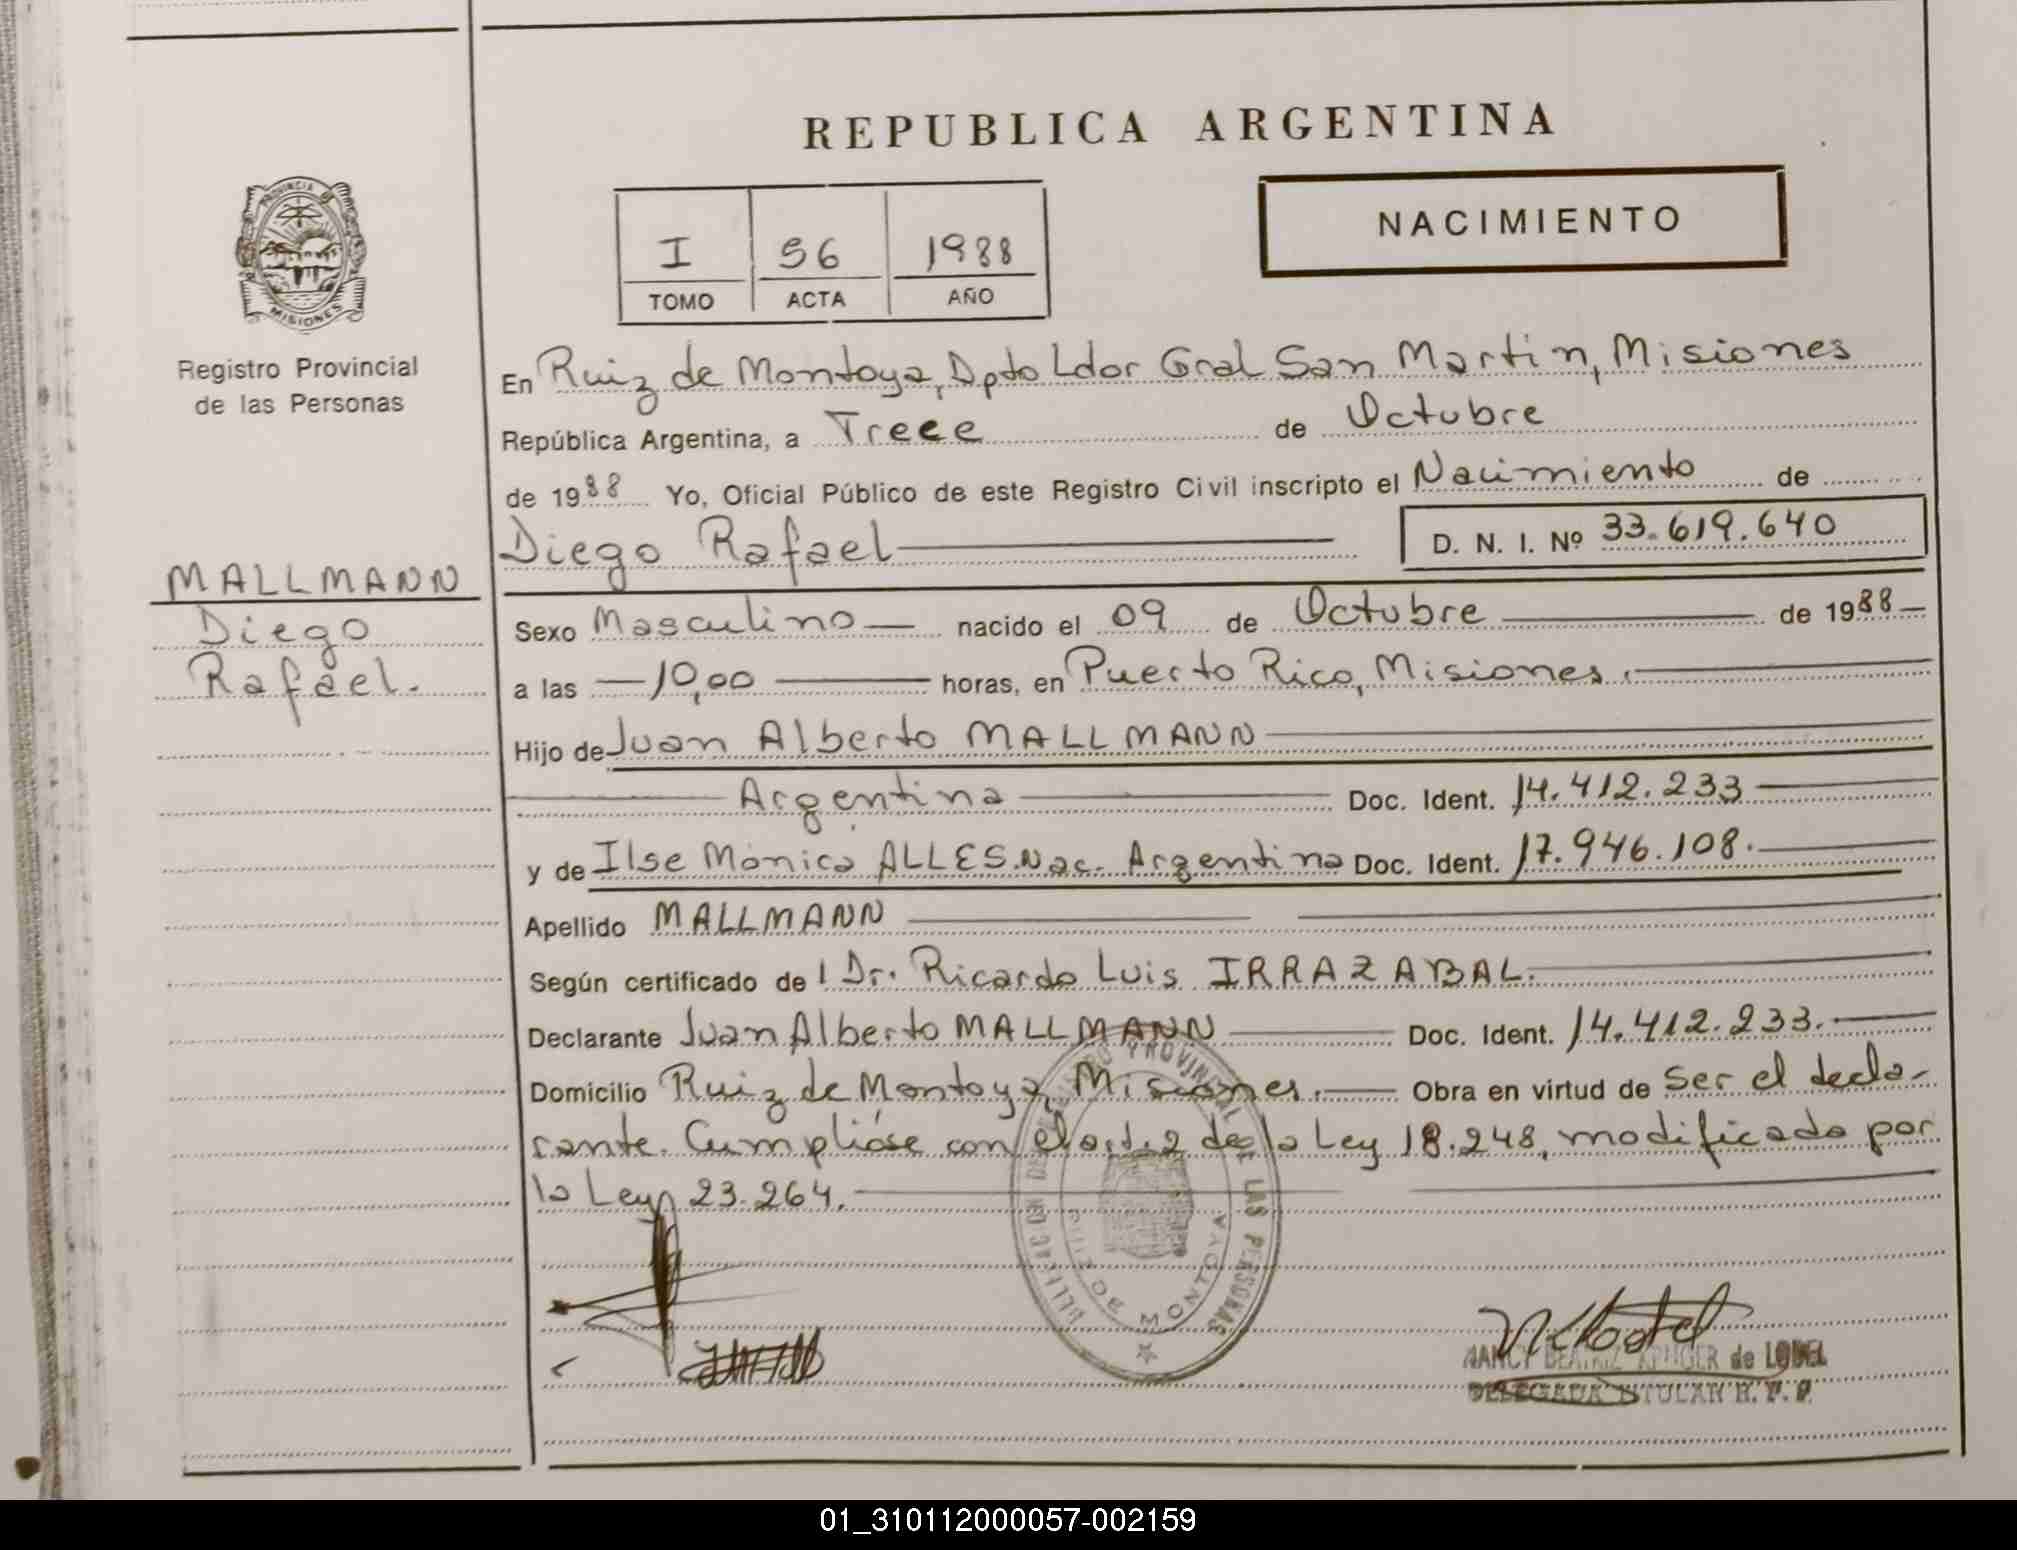 REPUBLICA ARGENTINA
NACIMIENTO
I 56 1988
TOMO ACTA AÑO
PROVINCIA
MISIONES
Registro Provincial
de las Personas
MALLMANN
Diego
Rafael.
En Ruiz de Montoya, Dpto Ldor Gral San Martin, Misiones
República Argentina, a Trece de Octubre
de 1988 Yo, Oficial Público de este Registro Civil inscripto el Nacimiento de
Diego Rafael D. N. I. Nº 33.619.640
Sexo Masculino nacido el 09 de Octubre de 1988
a las 10,00 horas, en Puerto Rico, Misiones.
Hijo de Juan Alberto MALLMANN
Argentina Doc. Ident. 14.412.233
y de Ilse Mónica ALLES.Nac. Argentina Doc. Ident. 17.946.108.
Apellido MALLMANN
Según certificado de l Dr. Ricardo Luis IRRAZABAL.
Declarante Juan Alberto MALLMANN Doc. Ident. 14.412.233.
Domicilio Ruiz de Montoya, Misiones. Obra en virtud de ser el decla-
rante. Cumplióse con el art. 2 de la Ley 18.248, modificado por
la Ley 23.264.
DELEGACION DEL REGISTRO PROVINCIAL DE LAS PERSONAS
MONTOYA
NANCY BEATRIZ de LODEL
DELEGADA TITULAR R. P. P.
01_310112000057-002159